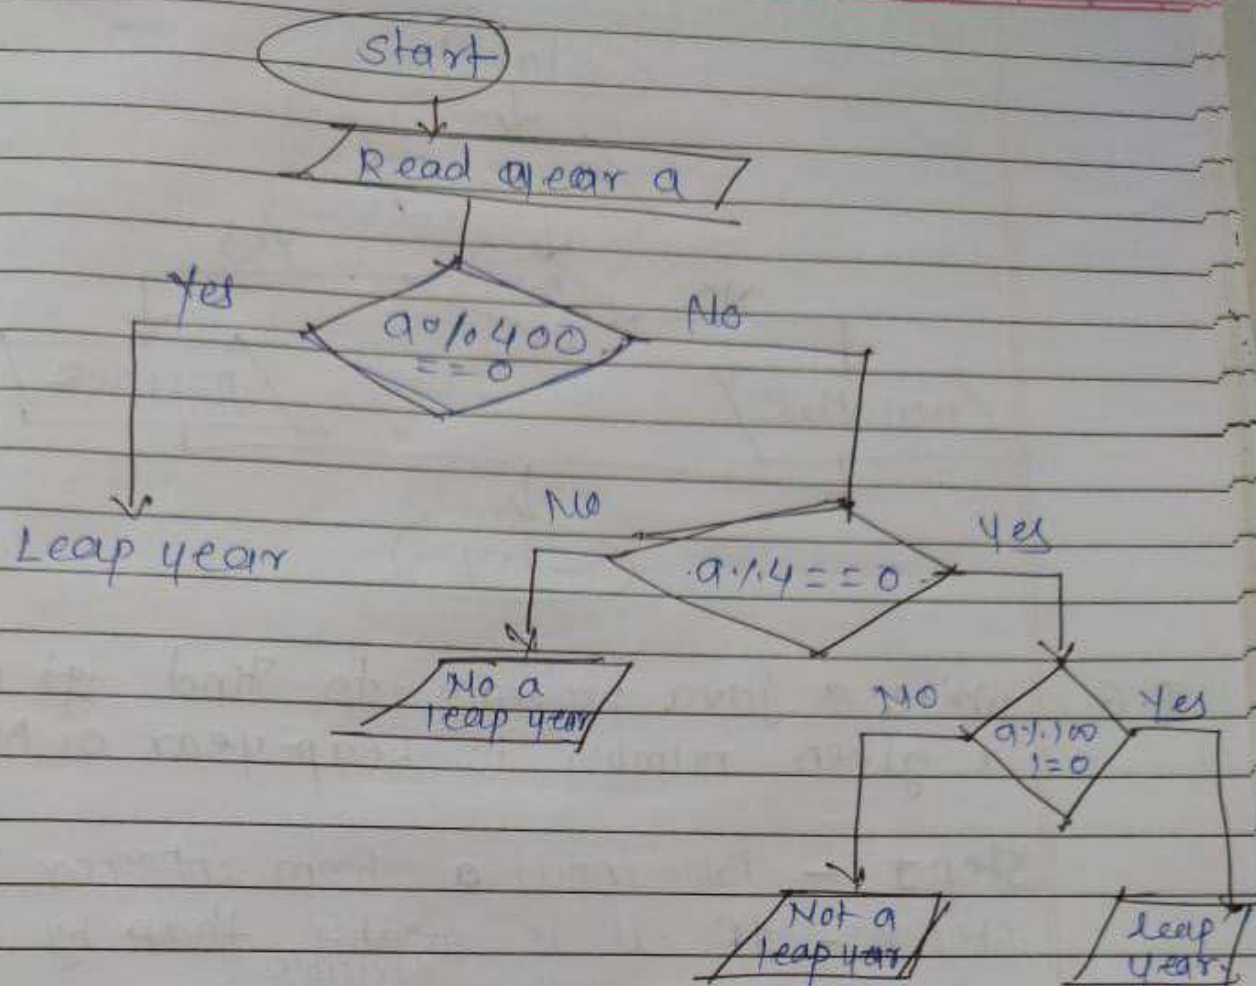 Start
Read year a
Yes
a%400
==0
No
Leap year
No
a%4==0
Yes
No a
leap year
NO
a%100
!=0
Yes
Not a
leap year
leap
year.